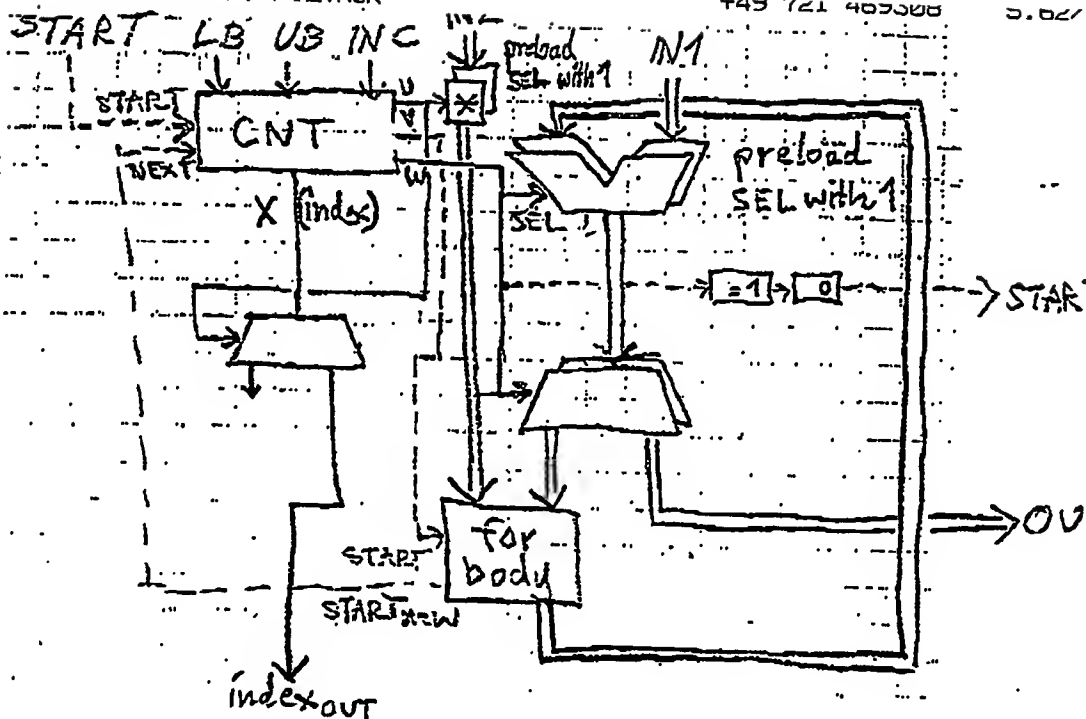 +49 721 4693088
START LB UB INC
preload
SEL with 1
IN1
START
NEXT
CNT
U
V
W
*
X (index)
preload
SEL with 1
SEL
=1
0
START
OU
for
body
START
START new
index OUT